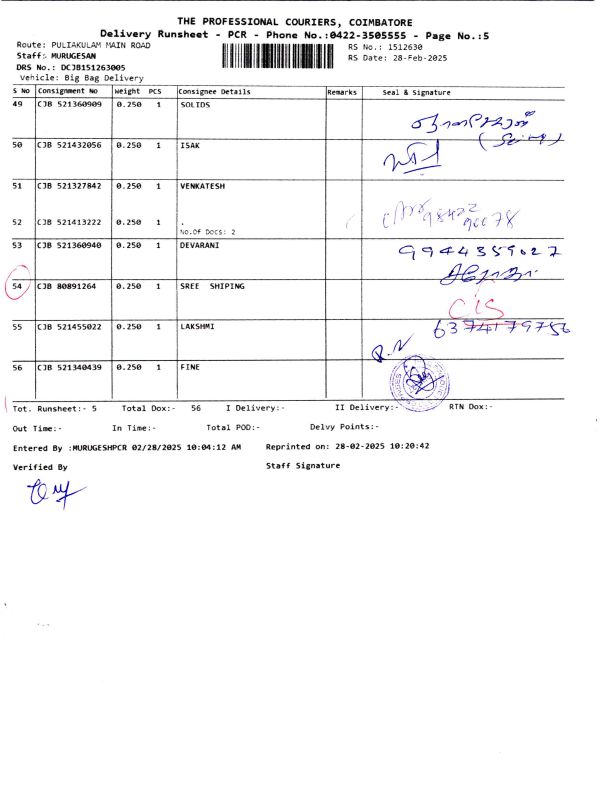 THE PROFESSIONAL COURIERS, COIMBATORE
Delivery Runsheet - PCR - Phone No.:0422-3505555 - Page No.:5
Route: PULIAKULAM MAIN ROAD
RS No.: 1512630
Staff: MURUGESAN
RS Date: 28-Feb-2025
DRS No.: DCJB151263005
Vehicle: Big Bag Delivery
S No Consignment No Weight PCS Consignee Details Remarks Seal & Signature
49 CJB 521360909 0.250 1 SOLIDS
50 CJB 521432056 0.250 1 ISAK
51 CJB 521327842 0.250 1 VENKATESH
52 CJB 521413222 0.250 1 .
No.Of Docs: 2
98422
90078
53 CJB 521360940 0.250 1 DEVARANI
9944359027
54 CJB 80891264 0.250 1 SREE SHIPING
CIS
55 CJB 521455022 0.250 1 LAKSHMI
6374179756
R.N
56 CJB 521340439 0.250 1 FINE
Tot. Runsheet:- 5 Total Dox:- 56 I Delivery:- II Delivery:- RTN Dox:-
Out Time:- In Time:- Total POD:- Delvy Points:-
Entered By :MURUGESHPCR 02/28/2025 10:04:12 AM Reprinted on: 28-02-2025 10:20:42
Verified By Staff Signature